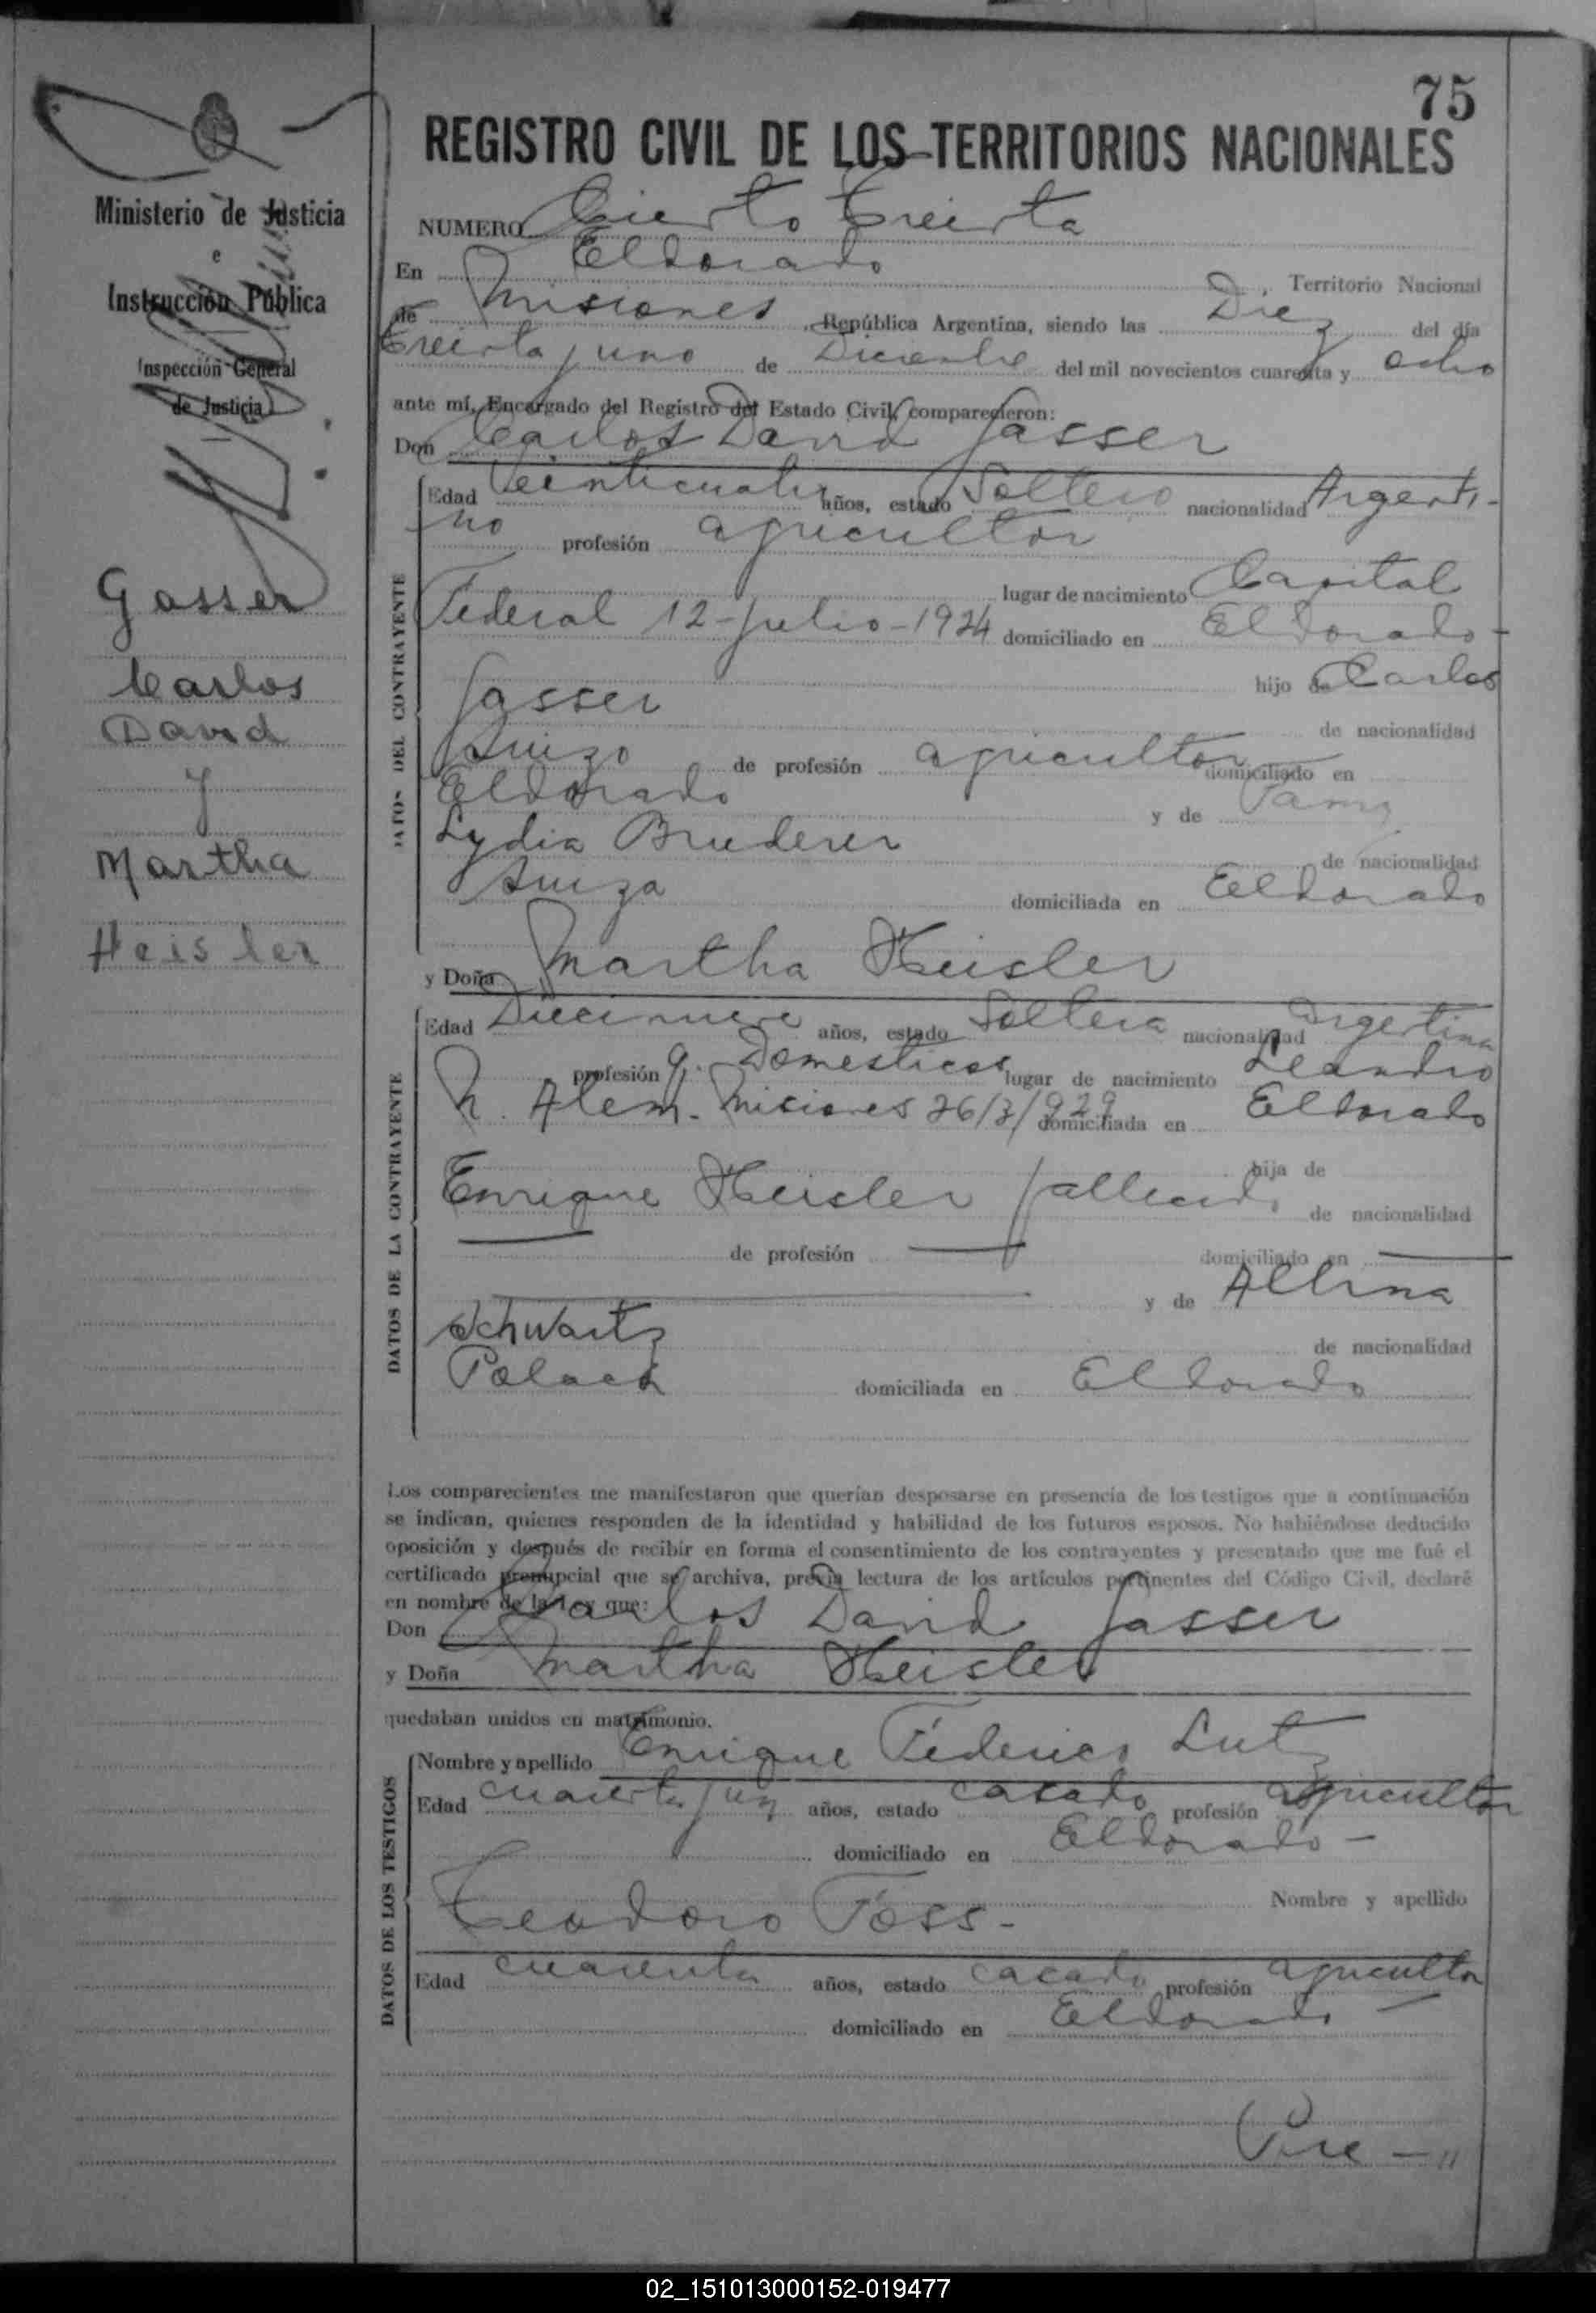 75
REGISTRO CIVIL DE LOS TERRITORIOS NACIONALES
Ministerio de Justicia
e
Instrucción Pública
Inspección General
de Justicia
Gasser
Carlos
David
y
Martha
Heisler
NUMERO Ciento treinta
En Eldorado Territorio Nacional
de Misiones República Argentina, siendo las Diez del día
treinta y uno de Diciembre del mil novecientos cuarenta y ocho
ante mí, Encargado del Registro del Estado Civil, comparecieron:
Don Carlos David Gasser
DATOS DEL CONTRAYENTE
Edad Veinticuatro años, estado Soltero nacionalidad Argenti-
no profesión agricultor
lugar de nacimiento Capital
Federal 12-julio-1924 domiciliado en Eldorado-
hijo de Carlos
Gasser de nacionalidad
Suizo de profesión agricultor domiciliado en
Eldorado y de
Lydia Bruderer de nacionalidad
Suiza domiciliada en Eldorado
y Doña Martha Heisler
DATOS DE LA CONTRAYENTE
Edad Diecinueve años, estado Soltera nacionalidad Argentina
profesión q. Domesticos lugar de nacimiento Leandro
N. Alem. Misiones 26/3/929 domiciliada en Eldorado
hija de
Enrique Heisler fallecido de nacionalidad
de profesión domiciliado en
y de Albina
Schwartz de nacionalidad
Polaca domiciliada en Eldorado
Los comparecientes me manifestaron que querían desposarse en presencia de los testigos que a continuación
se indican, quienes responden de la identidad y habilidad de los futuros esposos. No habiéndose deducido
oposición y después de recibir en forma el consentimiento de los contrayentes y presentado que me fué el
certificado prenupcial que se archiva, previa lectura de los artículos pertinentes del Código Civil, declaré
en nombre de la Ley que:
Don Carlos David Gasser
y Doña Martha Heisler
quedaban unidos en matrimonio.
DATOS DE LOS TESTIGOS
Nombre y apellido Enrique Federico Lutz
Edad cuarenta y un años, estado casado profesión agricultor
domiciliado en Eldorado-
Nombre y apellido
Teodoro Foss-
Edad cuarenta años, estado casado profesión agricultor
domiciliado en Eldorado-
02_151013000152-019477